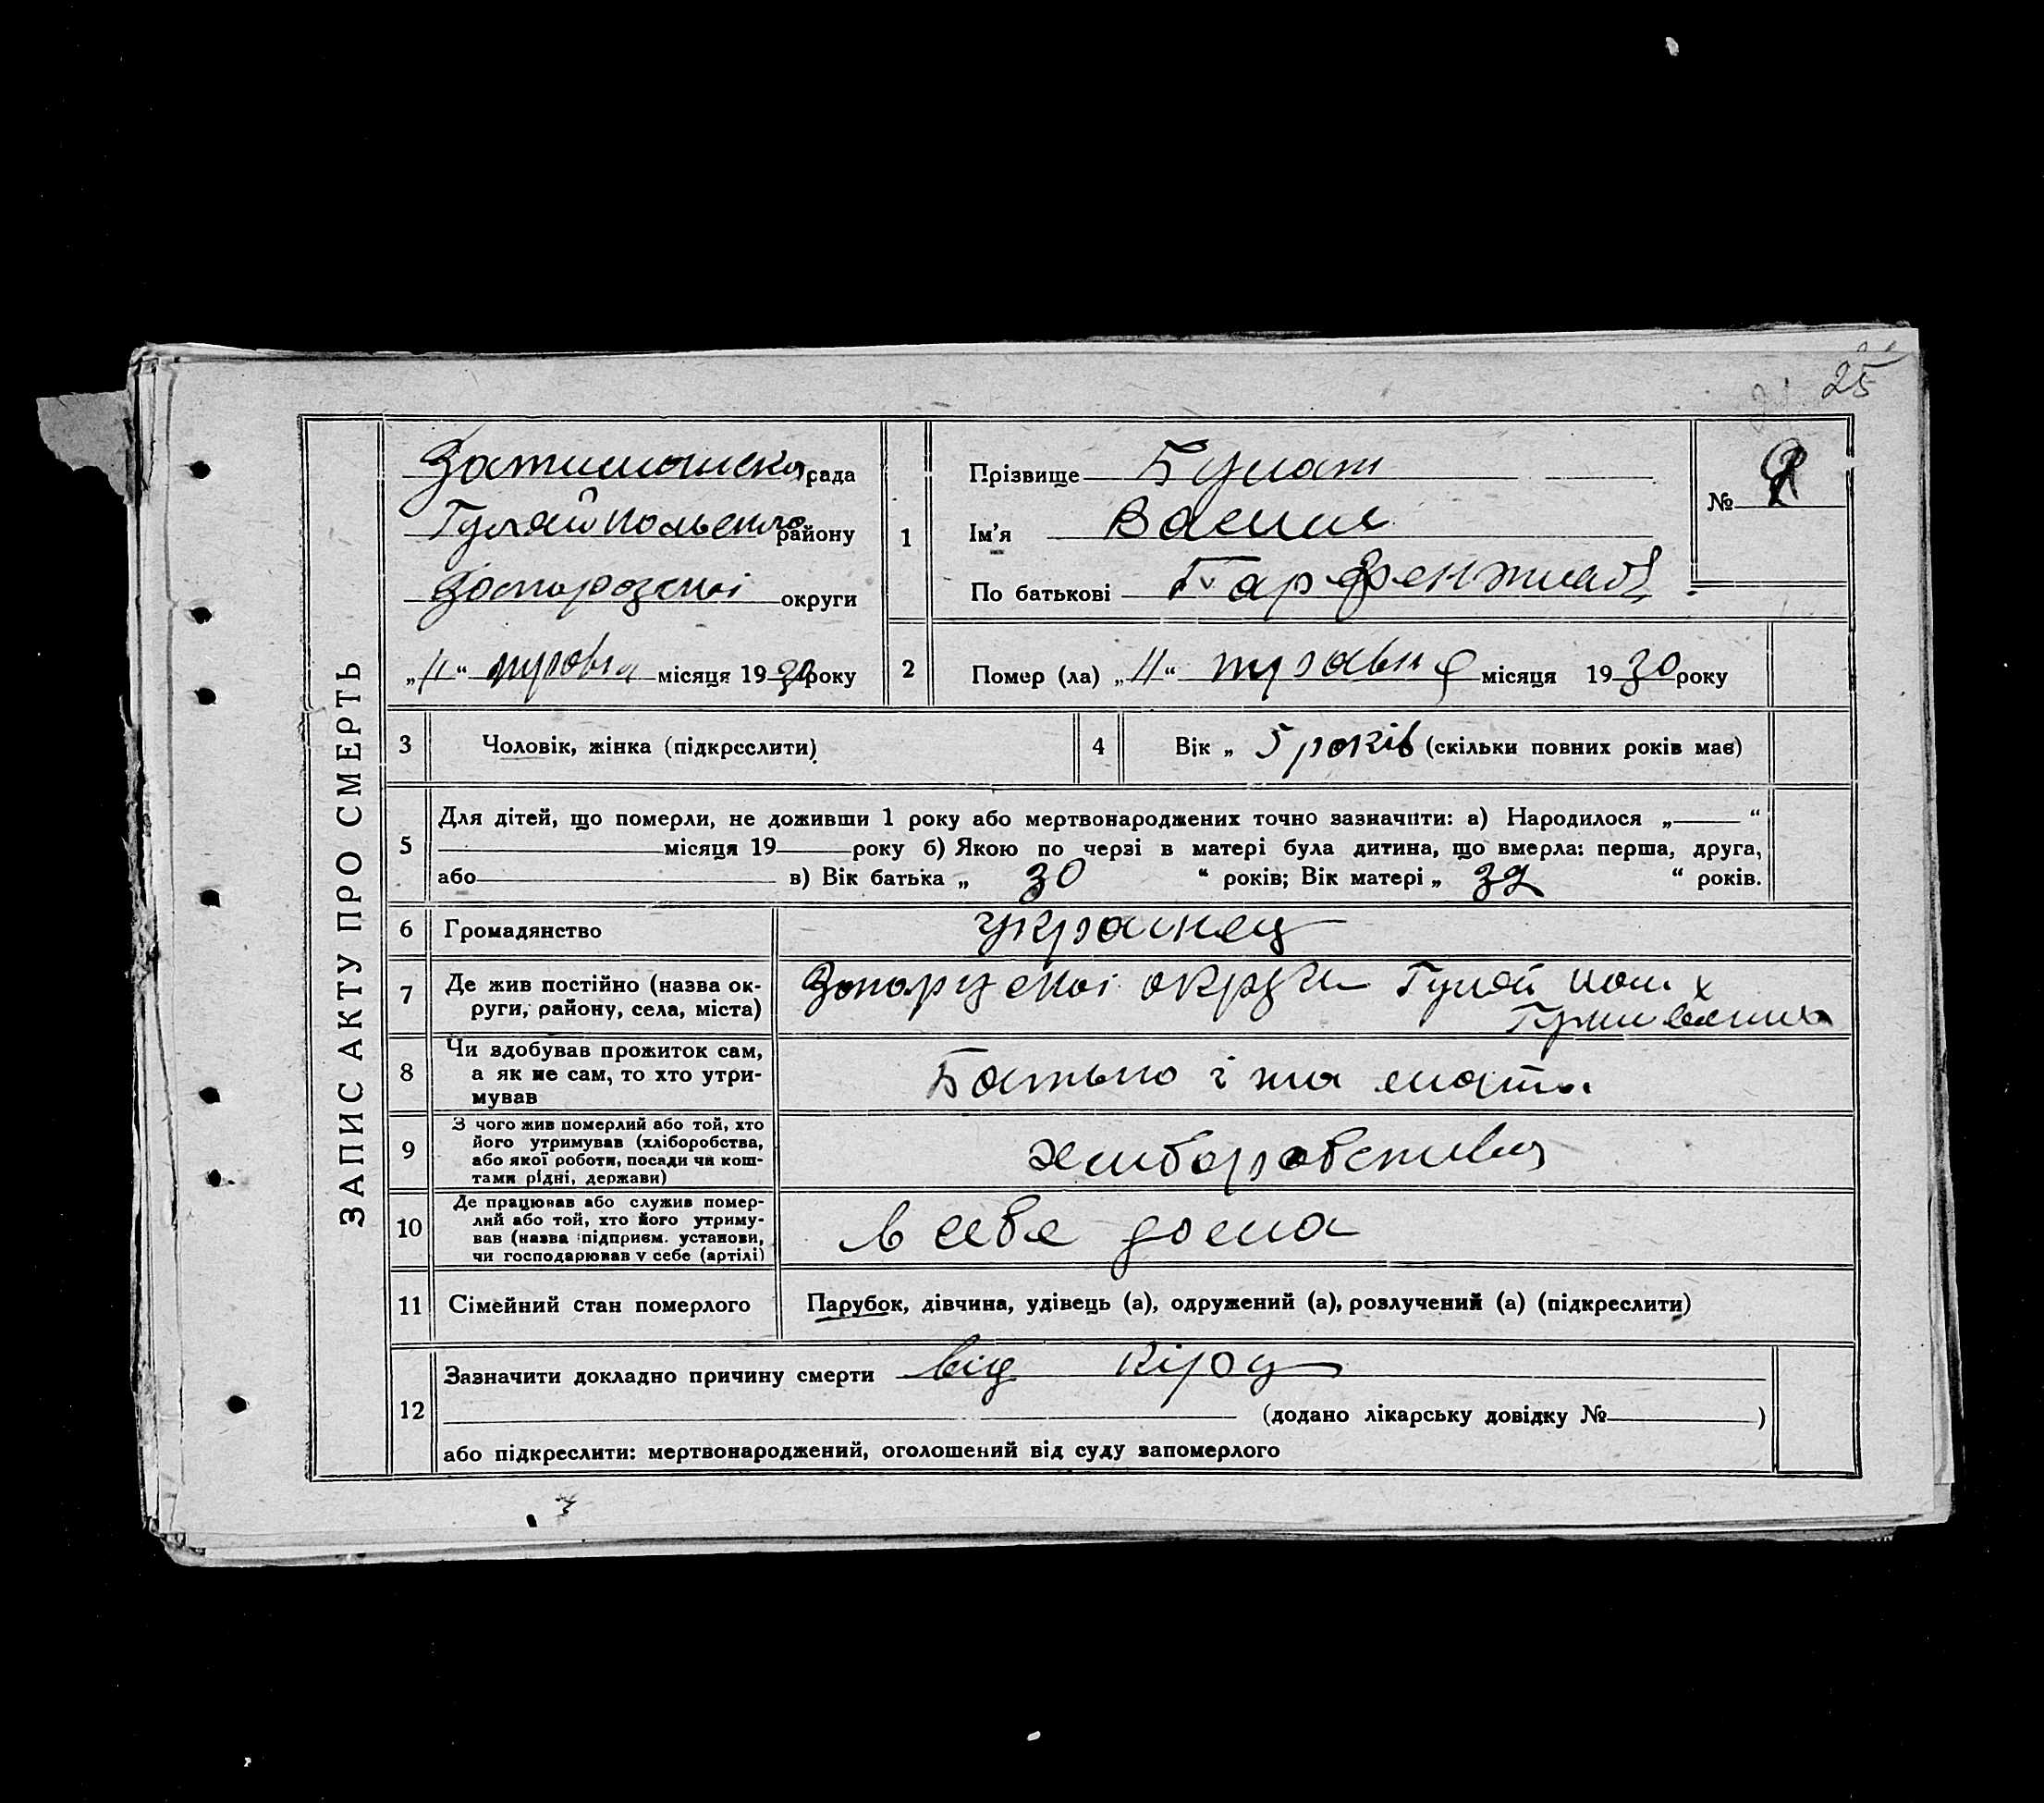 25
ЗАПИС АКТУ ПРО СМЕРТЬ
Затишанска рада
Гуляйпольського району
округи
„11“ травня місяця 1930 року
1
Прізвище Булат
Ім'я Василь
По батькові
№
2
Помер (ла) „11“ травня місяця 1930 року
3
Чоловік, жінка (підкреслити)
4
Вік „ 5 років (скільки повних років має)
5
Для дітей, що померли, не доживши 1 року або мертвонароджених точно зазначити: а) Народилося „ “
місяця 19 року б) Якою по черзі в матері була дитина, що вмерла: перша, друга,
або в) Вік батька „ 30 “ років; Вік матері „ 32 “ років.
6
Громадянство
украинец
7
Де жив постійно (назва ок-
руги, району, села, міста)
округи Гуляй пол. х
8
Чи здобував прожиток сам,
а як не сам, то хто утри-
мував
Батько і мати
9
З чого жив померлий або той, хто
його утримував (хліборобства,
або якої роботи, посади чи кош-
тами рідні, держави)
10
Де працював або служив помер-
лий або той, хто його утриму-
вав (назва підприєм. установи,
чи господарював у себе (артілі)
в себе дома
11
Сімейний стан померлого
Парубок, дівчина, удівець (а), одружений (а), розлучений (а) (підкреслити)
12
Зазначити докладно причину смерти від кіру
(додано лікарську довідку № )
або підкреслити: мертвонароджений, оголошений від суду запомерлого